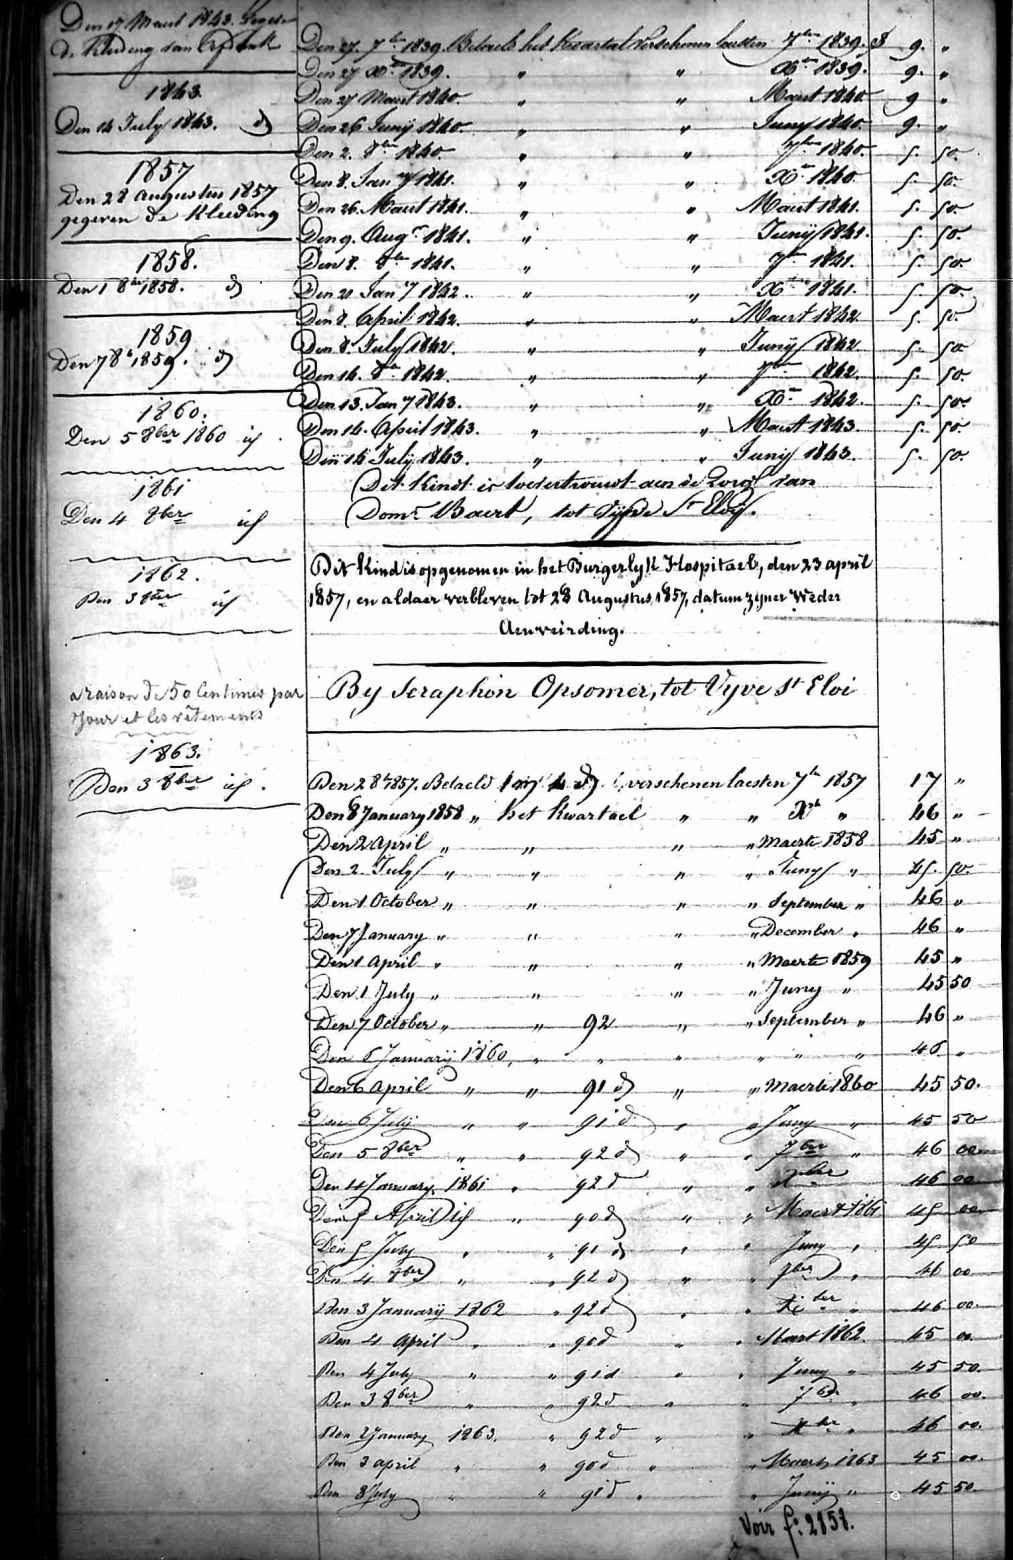 Den 17 Maert 1843.
de Kleeding van
1843
Den 14 July 1843. d
1857
Den 28 Augustus 1857
gegeven de Kleeding
1858.
Den 1 8br 1858. d
1859
Den 7 8br 1859. d
1860.
Den 5 8ber 1860 id
1861
Den 4 8ber id
1862.
Den 3 8ber id
a raison de 50 Centimes par
Jour et les vêtements
1863.
Den 3 8ber id.
Den 27. 7ber 1839. Betaelt het Kwartael verschenen laesten 7ber 1839. f 9. "
Den 27 Xber 1839. " " Xber 1839. 9. "
Den 27 Maert 1840. " " Maert 1840. 9 "
Den 26 Junij 1840. " " Juny 1840. 9. "
Den 2. 8ber 1840. " " 7ber 1840. 5. 50.
Den 8. Jan.y 1841. " " Xber 1840. 5. 50.
Den 26. Maert 1841. " " Maert 1841. 5. 50.
Den 9. Augt 1841. " " Junij 1841. 5. 50.
Den 8. 8ber 1841. " " 7ber 1841. 5. 50.
Den 20 Jan.y 1842. " " Xber 1841. 5. 50.
Den 8. April 1842. " " Maert 1842. 5. 50.
Den 8. July 1842. " " Junij 1842. 5. 50.
Den 14. 8br 1842. " " 7ber 1842. 5. 50.
Den 13. Jan.y 1843. " " Xber 1842. 5. 50.
Den 14. April 1843. " " Maert 1843. 5. 50.
Den 14 July 1843. " " Junij 1843. 5. 50.
Dit kindt is toevertrouwt aen de zorg van
Domc Baert, tot Vijve St Eloij.
Dit Kind is opgenomen in het Burgerlyk Hospitael, den 23 april
1857, en aldaer verbleven tot 28 Augustus 1857, datum zyner Weder
Aenveirding.
By Seraphin Opsomer, tot Vyve St Eloi
Den 2 8br 1857. Betaeld verschenen laesten 7br 1857 17 "
Den 8 January 1858 " het Kwartael " " Xbr " 46 "
Den 2 April " " " " Maerte 1858 45 "
Den 2 July " " " " Juny " 45. 50.
Den 1 October " " " " September " 46 "
Den 7 January " " " " December " 46 "
Den 1 April " " " " Maerte 1859 45 "
Den 1 July " " " " Juny " 45 50
Den 7 October " " 92 " " September " 46 "
Den 6 Januarij 1860, " " " " " " 46. "
Den 6 April " " 91 d " " Maerte 1860 45 50.
Den 6 July " " 91 d " " Juny " 45 50
Den 5 8ber " " 92 d " " 7ber " 46 00
Den 4 January 1861 " 92 d " " Xber 46 00
Den 5 April id " 90 d " " Maert 1861 45 00
Den 5 July " " 91 d " " Juny " 45 50
Den 4 8ber " " 92 d " " 7ber " 46 00
Den 3 Januarij 1862 " 92 d " " Xber " 46 00.
Den 4 April " " 90 d " " Maert 1862. 45 00.
Den 4 July " " 91 d " " Juny " 45 50.
Den 3 8ber " " 92 d " " 7br " 46 00.
Den 2 January 1863. " 92 d " " Xber " 46 00.
Den 3 april " " 90 d " " Maert 1863 45 00.
Den 3 July " " 91 d " " Junij " 45 50.
Voir fo: 2158.